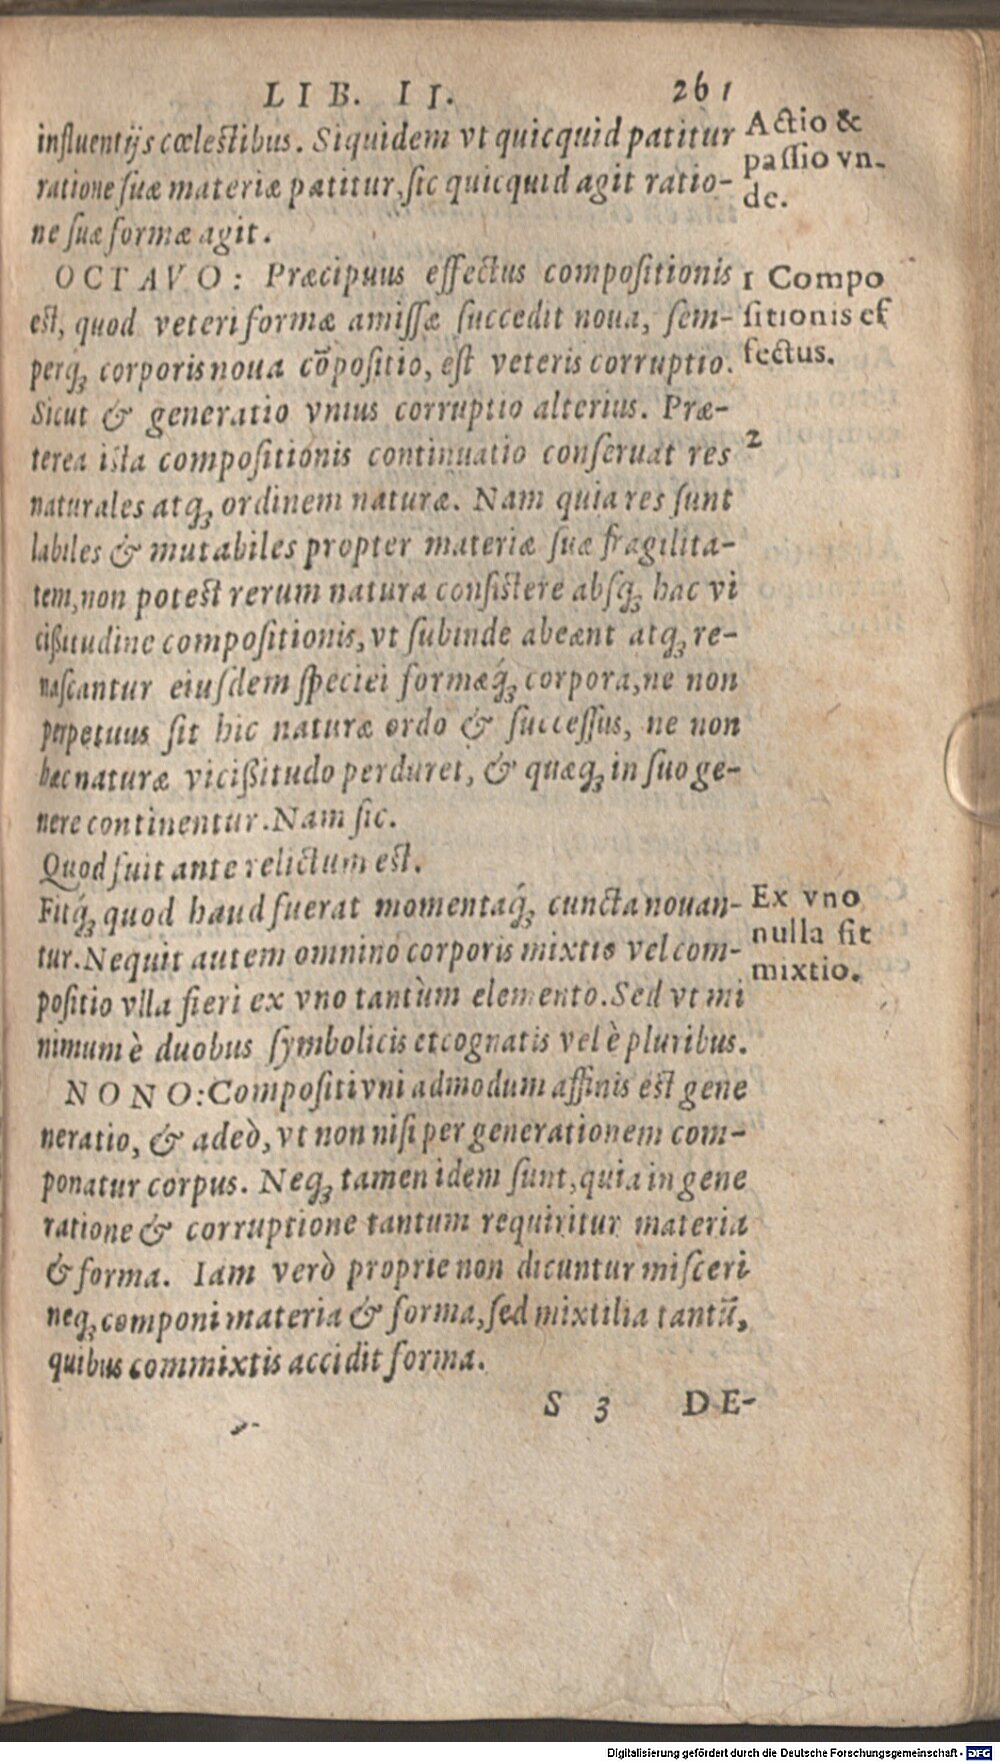 LIB. II. 261
influentijs cœlestibus. Siquidem vt quicquid patitur
ratione suæ materiæ patitur, sic quicquid agit ratio-
ne suæ formæ agit.
Actio &
passio vn-
de.
OCTAVO: Præcipuus effectus compositionis
est, quod veteri formæ amissæ succedit noua, sem-
perq́ꝫ corporis noua cōpositio, est veteris corruptio.
Sicut & generatio vnius corruptio alterius. Præ-
terea ista compositionis continuatio conseruat res
naturales atqꝫ ordinem naturæ. Nam quia res sunt
labiles & mutabiles propter materiæ suæ fragilita-
tem, non potest rerum natura consistere absqꝫ hac vi
cißitudine compositionis, vt subinde abeant atqꝫ re-
nascantur eiusdem speciei formæq́ꝫ corpora, ne non
perpetuus sit hic naturæ ordo & successus, ne non
hæc naturæ vicißitudo perduret, & quæqꝫ in suo ge-
nere continentur. Nam sic.
1 Compo
sitionis ef
fectus.
2
Quod fuit ante relictum est.
Fitq́ꝫ quod haud fuerat momentaq́ꝫ cuncta nouan-
tur. Nequit autem omnino corporis mixtio vel com-
positio vlla fieri ex vno tantùm elemento. Sed vt mi
nimum è duobus symbolicis et cognatis vel è pluribus.
Ex vno
nulla fit
mixtio.
NONO: Compositivni admodum affinis est gene
neratio, & adeò, vt non nisi per generationem com-
ponatur corpus. Neqꝫ tamen idem sunt, quia in gene
ratione & corruptione tantum requiritur materia
& forma. Iam verò proprie non dicuntur misceri
neqꝫ componi materia & forma, sed mixtilia tantū,
quibus commixtis accidit forma.
S 3 DE-
Digitalisierung gefördert durch die Deutsche Forschungsgemeinschaft - DFG